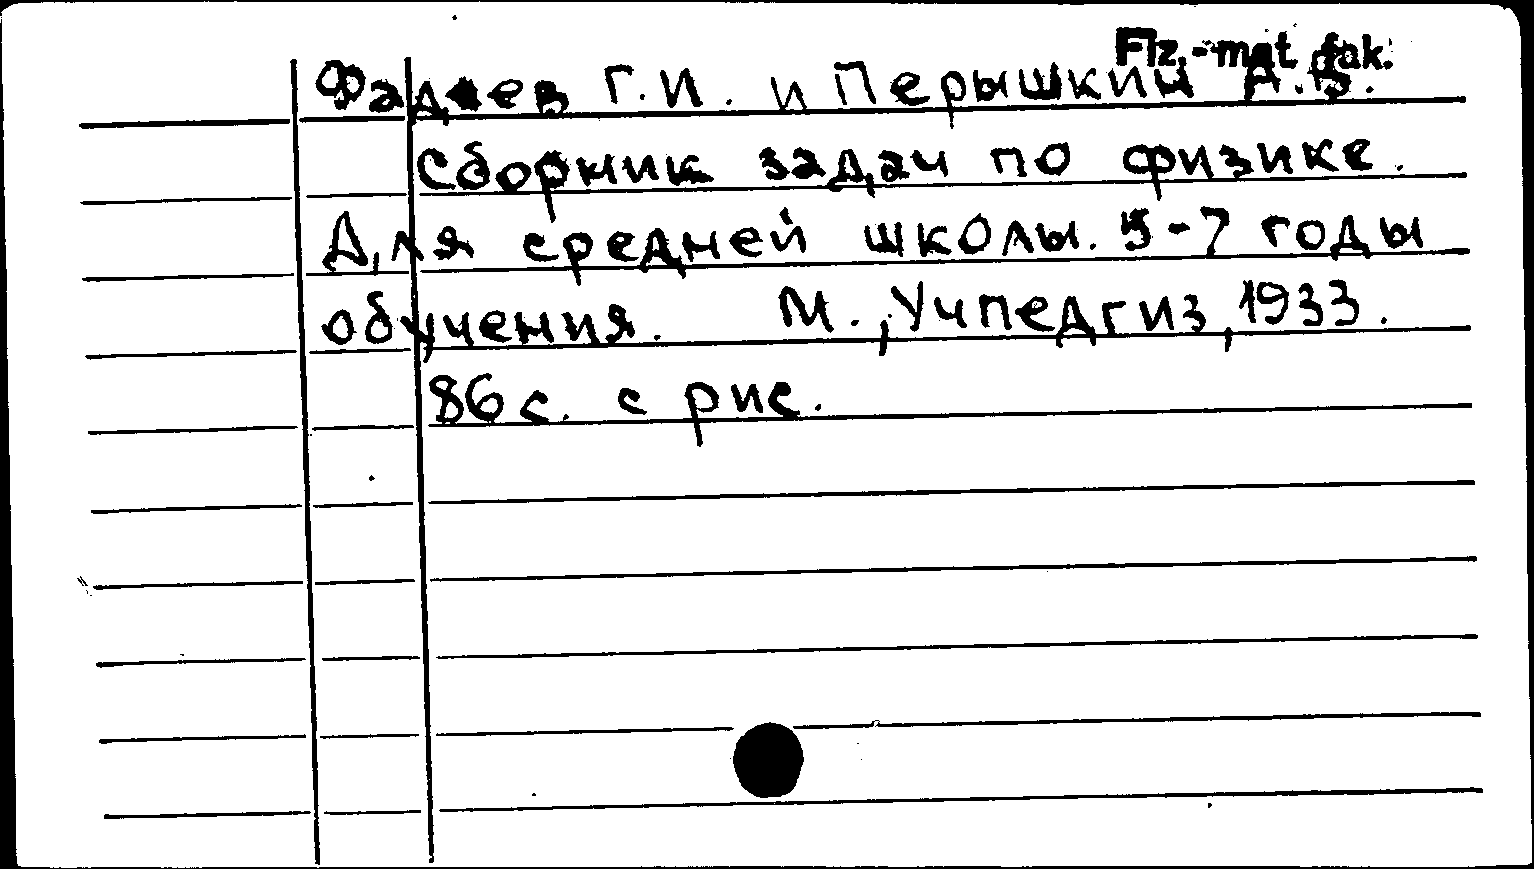 Fiz.-mat. fak.
Фадеев Г.И. и Перышкин А.В.
Сборник задач по физике.
Для средней школы. 5-7 годы
обучения. М., Учпедгиз, 1933.
86 с. с рис.